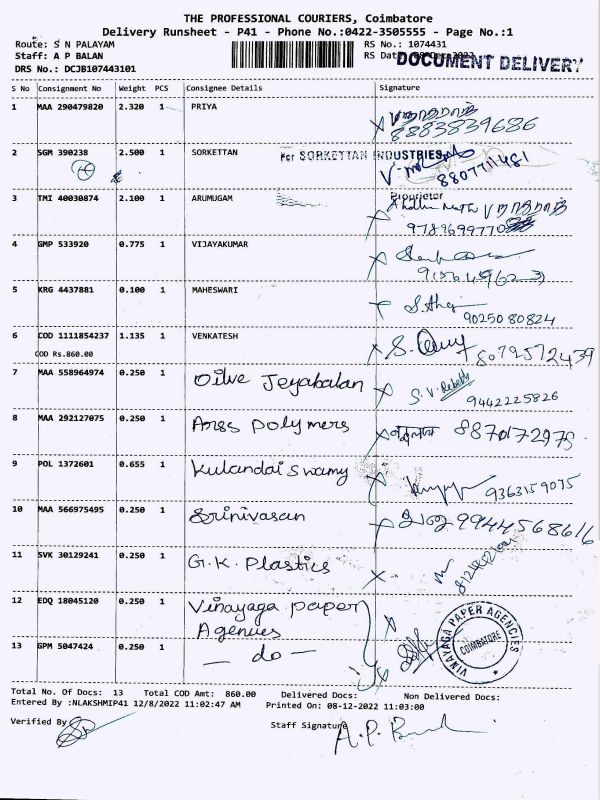 THE PROFESSIONAL COURIERS, Coimbatore
Delivery Runsheet - P41 - Phone No.:0422-3505555 - Page No.:1
Route: S N PALAYAM RS No.: 1074431
Staff: A P BALAN RS Dat
DOCUMENT DELIVERY
DRS No.: DCJB107443101
S No Consignment No Weight PCS Consignee Details Signature
1 MAA 290479820 2.320 1 PRIYA
8883839686
2 SGM 390238 2.500 1 SORKETTAN For SORKETTAN INDUSTRIES
8807711481
Proprietor
3 TMI 40030874 2.100 1 ARUMUGAM
9789699770
4 GMP 533920 0.775 1 VIJAYAKUMAR
5 KRG 4437881 0.100 1 MAHESWARI
9025080824
6 COD 1111854237 1.135 1 VENKATESH
COD Rs.860.00
8072572439
7 MAA 558964974 0.250 1 Oilve Jeyabalan
9442225826
8 MAA 292127075 0.250 1 Arss polymers 8870172975
9 POL 1372601 0.655 1 Kulandai swamy
9363159075
10 MAA 566975495 0.250 1 Srinivasan 9944568616
11 SVK 30129241 0.250 1 G.K. Plastics
12 EDQ 18045120 0.250 1 Vinayaga paper
Agencies
VINAYAGA PAPER AGENCIES
COIMBATORE
13 GPM 5047424 0.250 1 — do —
Total No. Of Docs: 13 Total COD Amt: 860.00 Delivered Docs: Non Delivered Docs:
Entered By :NLAKSHMIP41 12/8/2022 11:02:47 AM Printed On: 08-12-2022 11:03:00
Verified By
Staff Signature